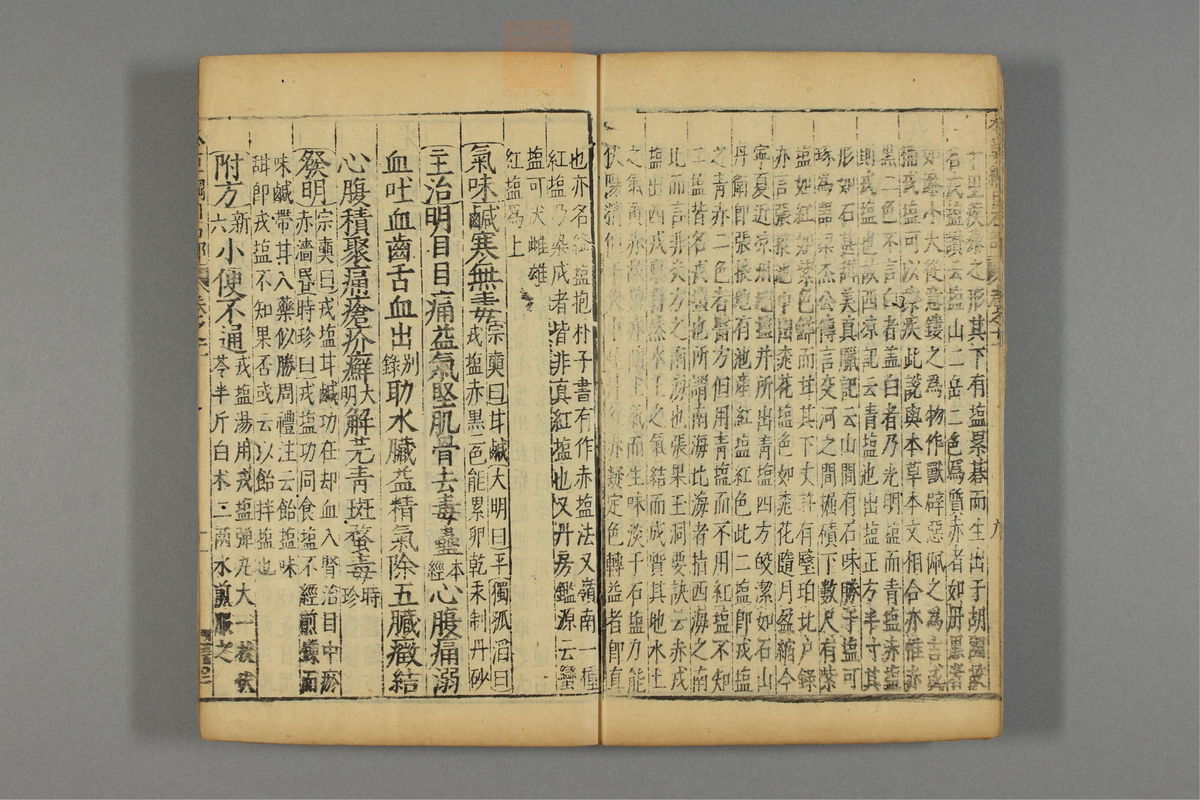 之形其下有塩累碁而生出于胡國故
名戎塩讚云塩山二岳二色爲質赤者如丹黑者
如漆小大從意鏤之爲物作獸辟惡佩之爲吉
稱戎塩可以療疾此說與本草本文相合亦惟赤
黑二色不言白者蓋白者乃光明塩而青塩赤塩
則戎塩也故西凉記云青塩池出塩正方半寸其
形如石甚甜美真臘記云山間有石味勝于塩可
琢爲器梁杰公傳言交河之間掘磧下數尺有紫
塩如紅如紫色鮮而甘其下丈許有瑿珀北户錄
亦言張掖池中出桃花塩色如桃花隨月盈縮今
寧夏近凉州地塩井所出青塩四方皎潔如石山
丹衛即張掖地有池產紅塩紅色此二塩即戎塩
之青赤二色者醫方但用青塩而不用紅塩不知
二塩皆名戎塩也所謂南海北海者指西海之南
北而言非炎方之南海也張果玉洞要訣云赤戎
塩出西戎稟自然水土之氣結而成質其地水土
之氣黄赤故塩亦隨土氣而生味淡于石塩力能
伏陽精但于火中燒汁紅赤凝定色轉益者即真
也亦名絳塩抱朴子書有作赤塩法又嶺南一種
紅塩乃染成者皆非真紅塩也又丹房鑑源云蠻
塩可伏雌雄
紅塩爲上
氣味鹹寒無毒宗奭曰甘鹹大明曰平獨孤滔曰
戎塩赤黑二色能累卵乾汞制丹砂
主治明目目痛益氣堅肌骨去毒蠱本經心腹痛溺
血吐血齒舌血出别錄助水臟益精氣除五臟癥結
心腹積聚痛瘡疥癬大明解芫青斑蝥毒時珍
發明宗奭曰戎塩甘鹹功在却血入腎治目中瘀
赤濇昏時珍曰戎塩功同食塩不經煎鍊而
味鹹帶甘入藥似勝周禮注云飴塩味
甜即戎塩不知果否或云以飴拌塩也
附方新六小便不通戎塩湯用戎塩彈丸大一枚茯
苓半斤白术二兩水煎服之